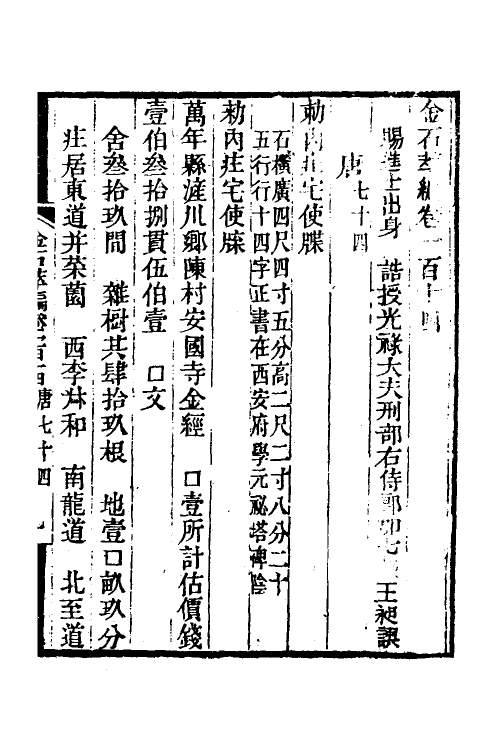 金石萃編卷一百十四
賜進士出身 誥授光祿大夫刑部右侍郎加七級王昶譔
唐七十四
勅內庄宅使牒
石橫廣四尺四寸五分高二尺二寸八分二十
五行行十四字正書在西安府學元祕塔碑陰
勅內庄宅使牒
萬年縣滻川鄉陳村安國寺金經 口壹所計估價錢
壹伯叁拾捌貫伍伯壹 口文
舍叁拾玖間 雜樹共肆拾玖根 地壹口畝玖分
庄居東道并菜園 西李升和 南龍道 北至道
金石萃編卷一百十四 唐七十四 一